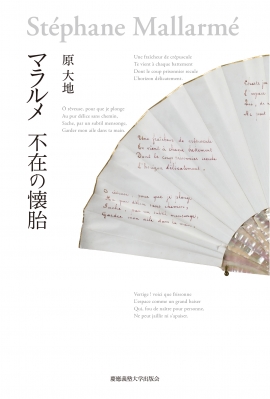 Stéphane Mallarmé
原 大地
マラルメ 不在の懐胎
Ô rêveuse, pour que je plonge
Au pur délice sans chemin,
Sache, par un subtil mensonge,
Garder mon aile dans ta main.
Une fraîcheur de crépuscule
Te vient à chaque battement
Dont le coup prisonnier recule
L'horizon délicatement.
Vertige ! voici que frissonne
L'espace comme un grand baiser
Qui, fou de naître pour personne,
Ne peut jaillir ni s'apaiser.
慶應義塾大学出版会